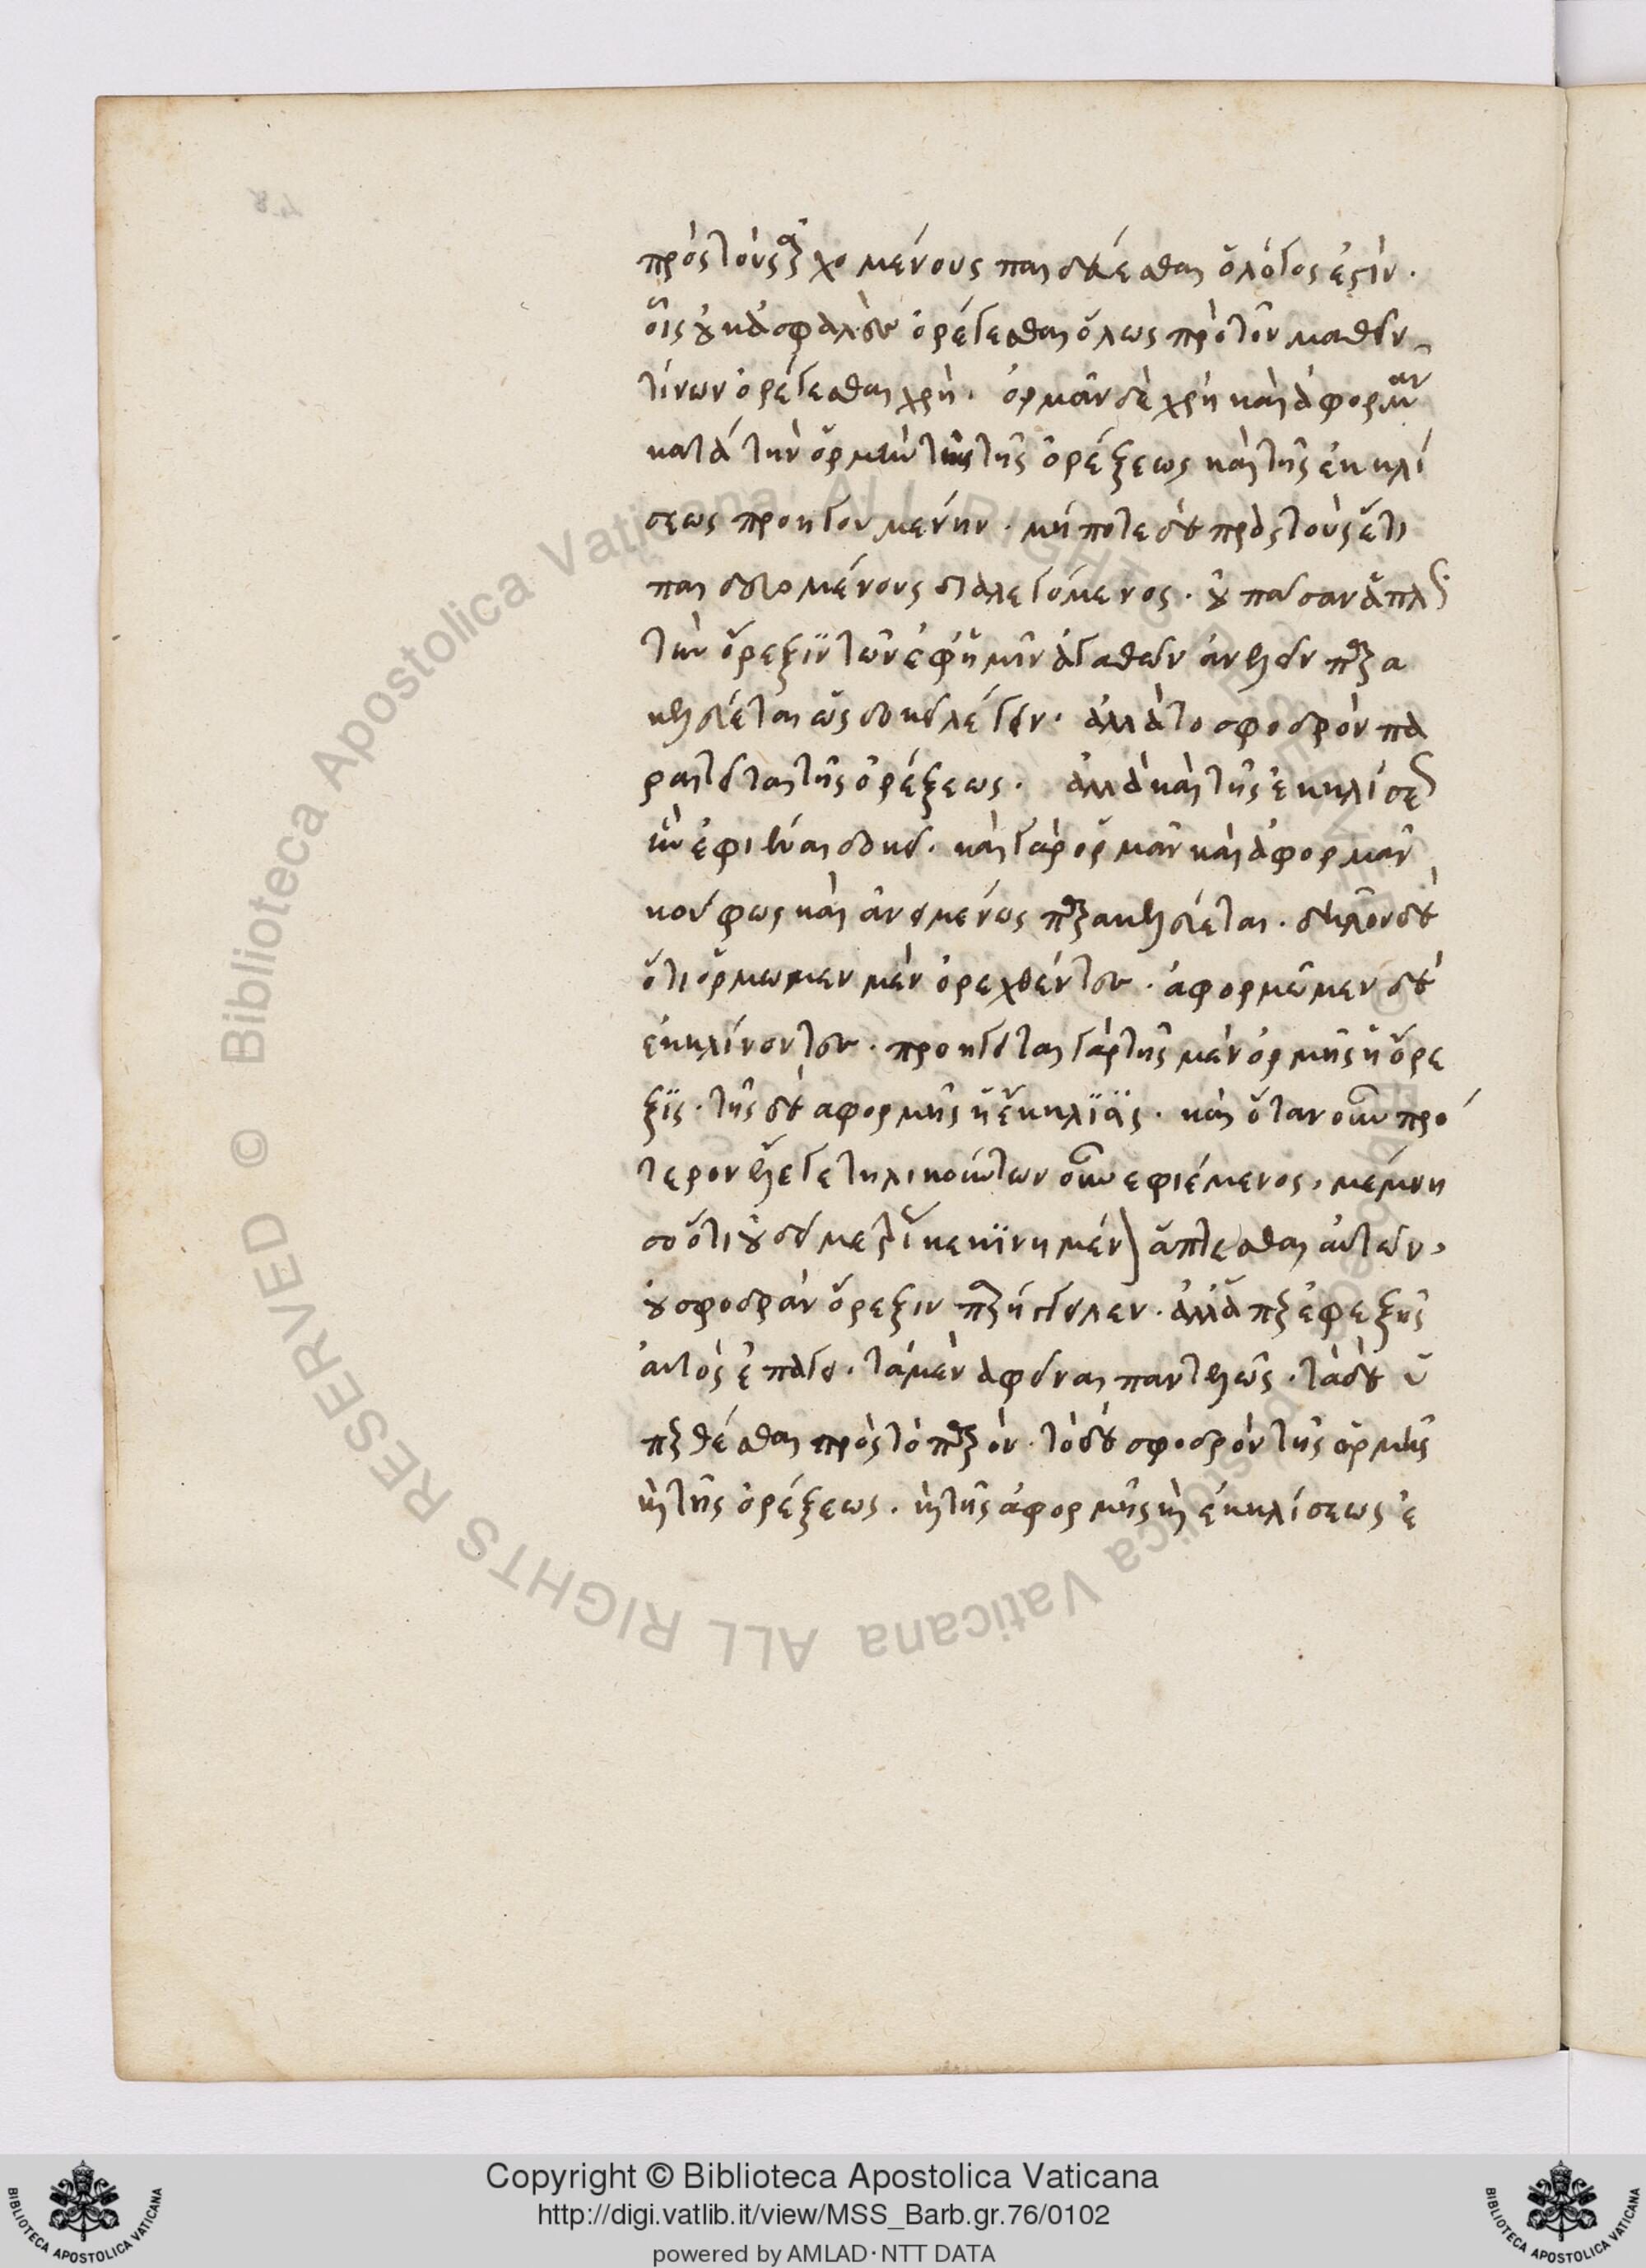 πρὸς τοὺς ἀρχομένους παιδεύεσθαι ὁ λόγος ἐστὶν.
οἷς οὐκ ἀσφαλὲς ὀρέγεσθαι ὅλως πρὸ τοῦ μαθεῖν
τίνων ὀρέγεσθαι χρὴ. ὁρμᾶν δὲ χρὴ καὶ ἀφορμᾶν
κατὰ τὴν ὁρμὴν τῆς τῆς ὀρέξεως καὶ τῆς ἐκκλί
σεως προηγουμένην. μήποτε δὲ πρὸς τοὺς ἔτι
παιδευομένους διαλεγόμενος. οὐ πᾶσαν ἁπλῶς
τὴν ὄρεξιν τῶν ἐφ' ἡμῖν ἀγαθῶν ἀνελεῖν παρα
κελεύεται ὡς δοκεῖ λέγειν. ἀλλὰ τὸ σφοδρὸν πα
ραιτεῖται τῆς ὀρέξεως. ἀλλὰ καὶ τῆς ἐκκλίσεως
ἣν ἐφιέναι δοκεῖ. καὶ γὰρ ὁρμᾶν καὶ ἀφορμᾶν
κούφως καὶ ἀνειμένως παρακελεύεται. δῆλον δὲ
ὅτι ὁρμῶμεν μὲν ὀρεχθέντες. ἀφορμῶμεν δὲ
ἐκκλίνοντες. προηγεῖται γὰρ τῆς μὲν ὁρμῆς ἡ ὄρε
ξις. τῆς δὲ ἀφορμῆς ἡ ἔκκλισις. καὶ ὅταν οὖν πρό
τερον ἔλεγε τηλικούτων οὖν ἐφιέμενος, μέμνη
σο ὅτι οὐ δεῖ μετρίως κεκινημένον ἅπτεσθαι αὐτῶν,
οὐ σφοδρὰν ὄρεξιν παρῄγγειλεν. ἀλλὰ παρεφεξῆς
αὐτὸς ἐπάγει. τὰ μὲν ἀφεῖναι παντελῶς. τὰ δὲ ὑ
περθέσθαι πρὸς τὸ παρὸν. τὸ δὲ σφοδρὸν τῆς ὁρμῆς
καὶ τῆς ὀρέξεως. καὶ τῆς ἀφορμῆς καὶ ἐκκλίσεως ἐ
Copyright © Biblioteca Apostolica Vaticana
http://digi.vatlib.it/view/MSS_Barb.gr.76/0102
powered by AMLAD·NTT DATA
BIBLIOTECA APOSTOLICA VATICANA
BIBLIOTECA APOSTOLICA VATICANA
© Biblioteca Apostolica Vaticana ALL RIGHTS RESERVED
© Biblioteca Apostolica Vaticana ALL RIGHTS RESERVED